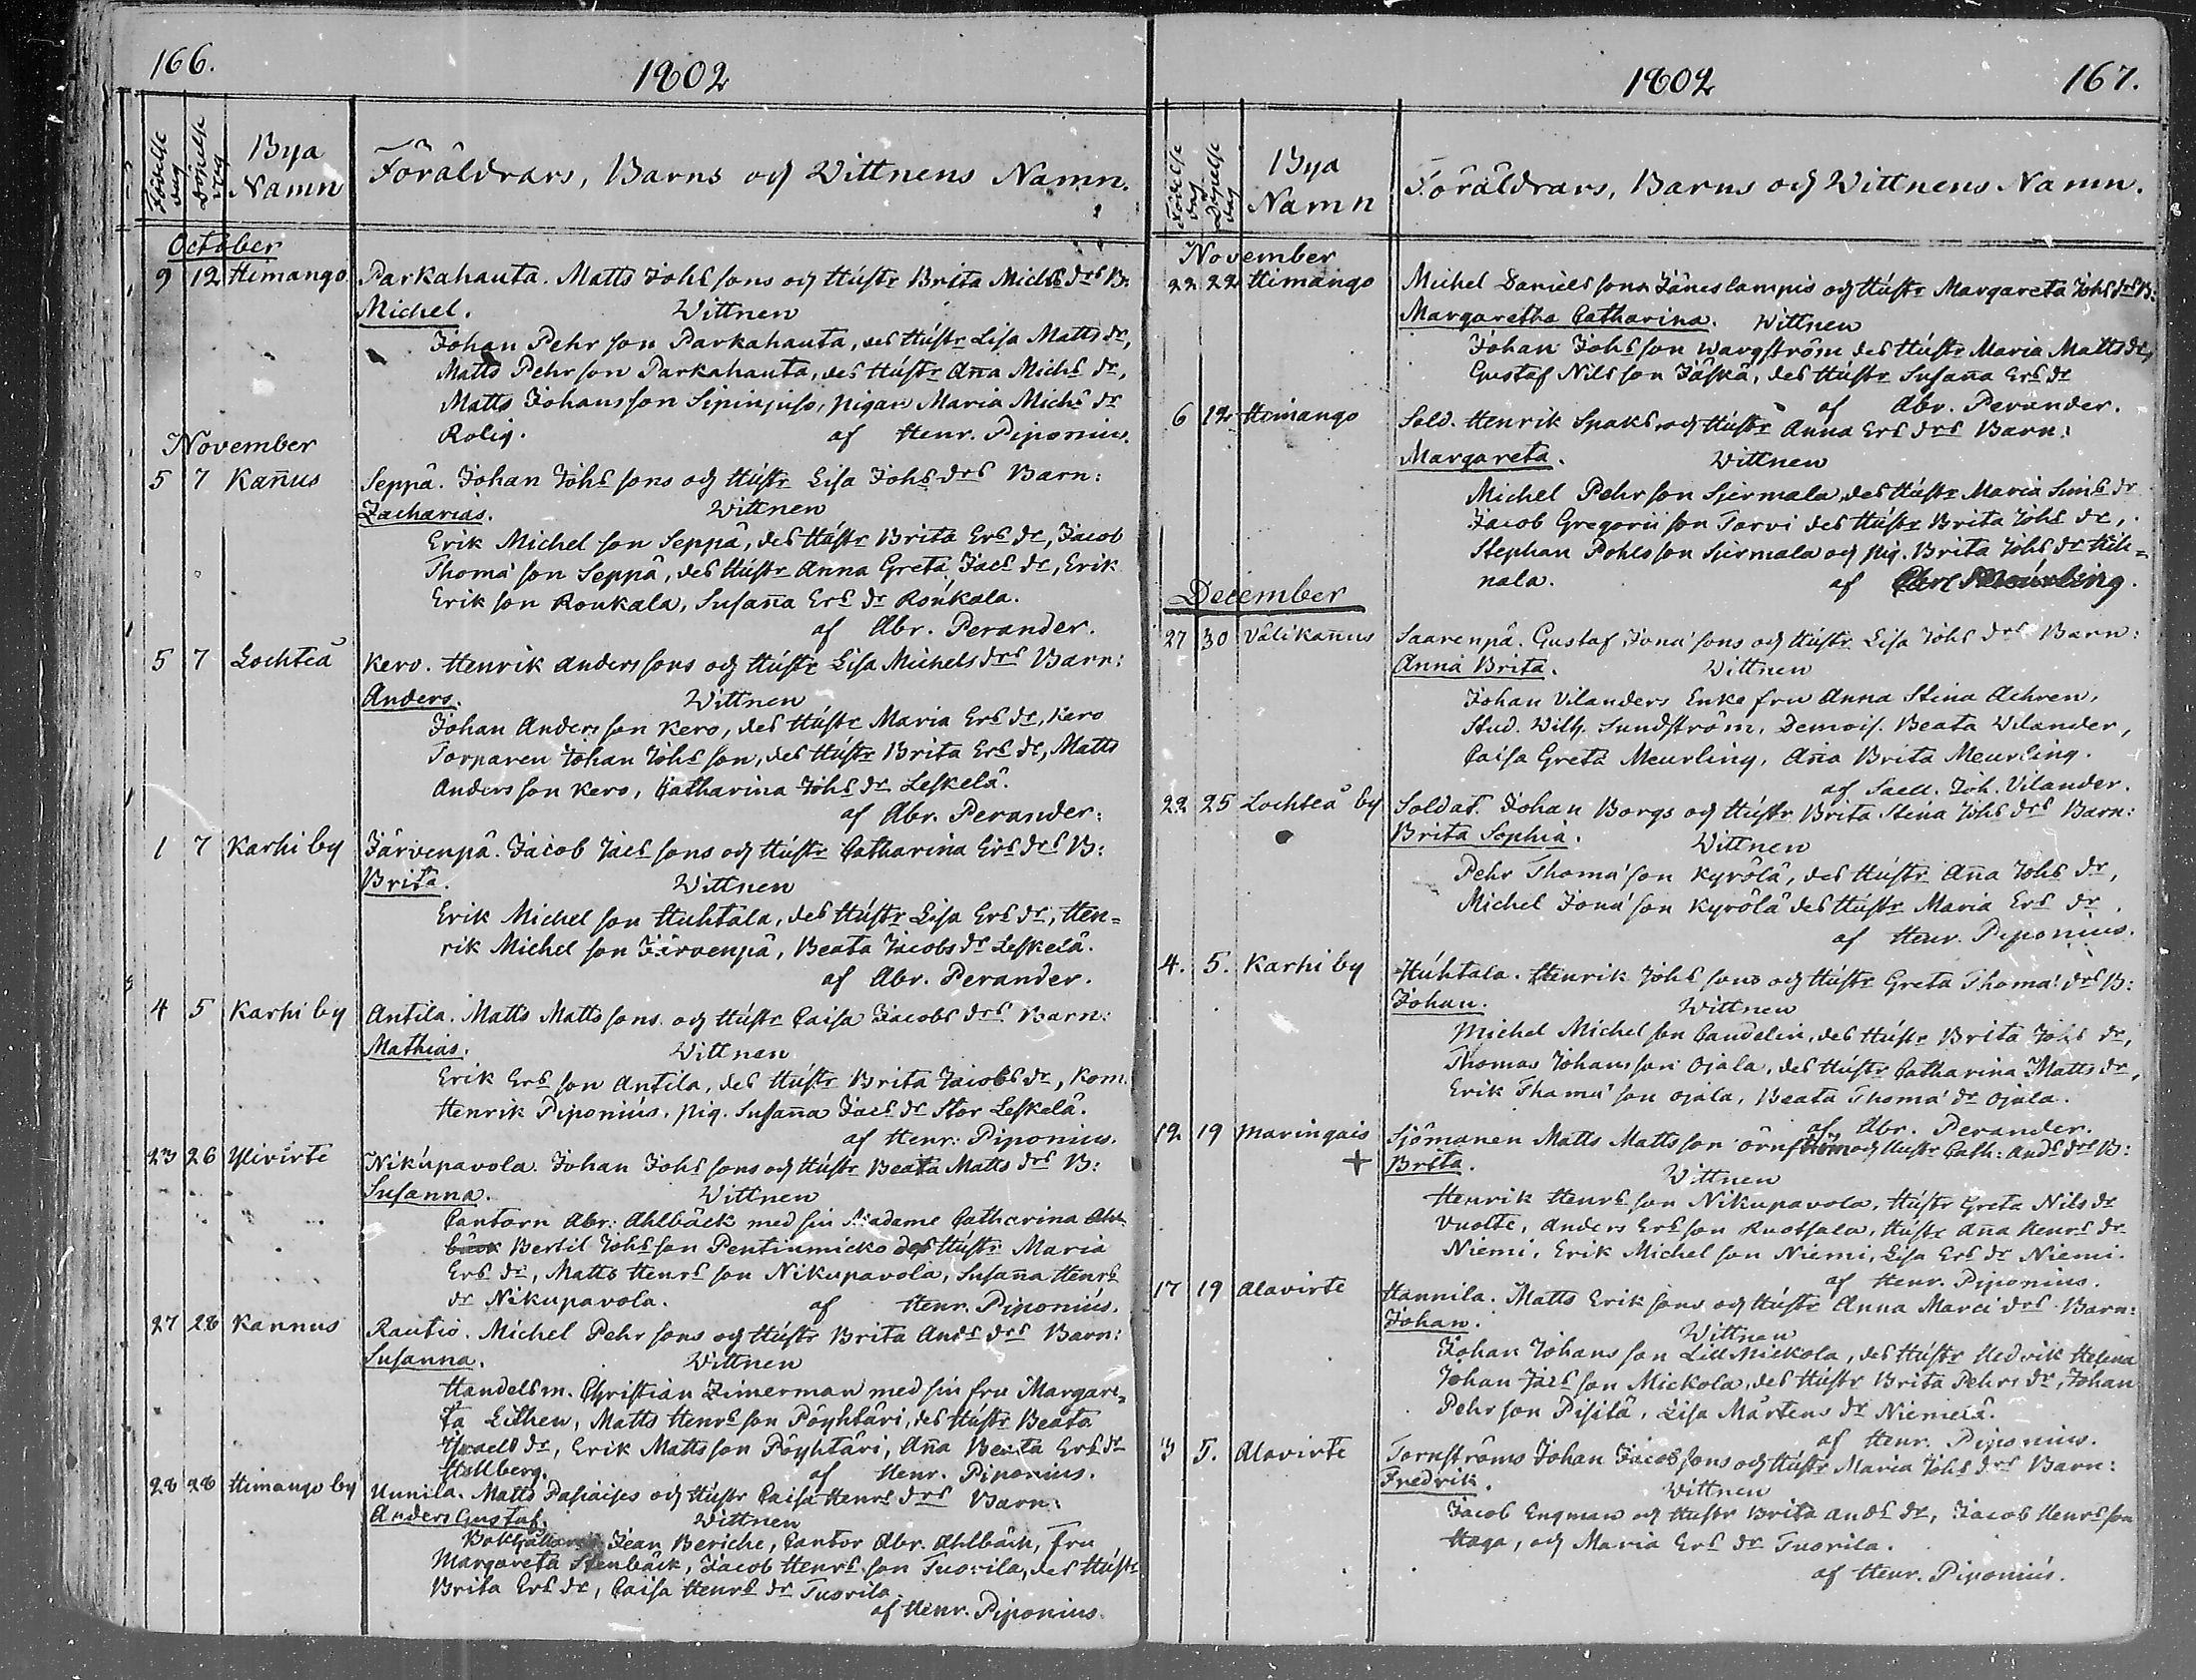 166.
1802
Födelse dag
Döpelse dag
Bya Namn
Föräldrars, Barns och Wittnens Namn.
October
9 12 Himango Parkahauta. Matts Johs sons och Hustr Brita Michs drs B:
Michel. Wittnen
Johan Pehr son Parkahauta, des Hustr Lisa Matts dr,
Matts Pehr son Parkahauta, des Hustr Aña Michs dr,
Matts Johans son Sipinpuso, pigan Maria Michs dr
Rolig. af Henr. Piponius.
November
5 7 Kañus Seppä. Johan Johs sons och Hustr Lisa Johs drs Barn:
Zacharias. Wittnen
Erik Michel son Seppä, des Hustr Brita Ers dr, Jacob
Thomä son Seppä, des Hustr Anna Greta Jacs dr, Erik
Erik son Roukala, Susaña Ers dr Roukala.
af Abr. Perander.
5 7 Lochteå Kero. Henrik Anders sons och Hustr Lisa Michels drs Barn:
Anders. Wittnen
Johan Anders son Kero, des Hustr Maria Ers dr, Kero
Torparen Johan Johs son, des Hustr Brita Ers dr, Matts
Anders son Kero, Catharina Johs dr Leskelä.
af Abr. Perander.
1 7 Karhi by Järvenpä. Jacob Jacs sons och Hustr Catharina Ers drs B:
Brita. Wittnen
Erik Michel son Huhtala, des Hustr Lisa Ers dr, Hen=
rik Michel son Järvenpä, Beata Jacobs dr Leskelä.
af Abr. Perander.
4 5 Karhi by Antila. Matts Matts sons och Hustr Caisa Jacobs drs Barn:
Mathias. Wittnen
Erik Ers son Antila, des Hustr Brita Jacobs dr, Kom.
Henrik Piponius, pig. Susaña Jacs dr Stor Leskelä.
af Henr: Piponius.
23 26 Ylivirte Nikupavola. Johan Johs sons och Hustr Beata Matts drs B:
Susanna. Wittnen
Cantorn Abr: Ahlbäck med sin Madame Catharina Ahl
bäck Bertil Johs son Pentinmicko des Hustr Maria
Ers dr, Matts Henrs son Nikupavola, Susaña Henrs
dr Nikupavola. af Henr. Piponius.
27 28 Kannus Rautio. Michel Pehr sons och Hustr Brita Ands drs Barn:
Susanna. Wittnen
Handelsm. Christian Zimerman med sin fru Margare=
ta Lithen, Matts Henrs son Pöyhtäri, des Hustr Beata
Israels dr, Erik Matts son Pöyhtäri, Aña Beata Ers dr
Stallberg. af Henr. Piponius.
28 28 Himango by Unnila. Matts Pasiaises och Hustr Caisa Henrs drs Barn:
Anders Gustaf. Wittnen
Bokhållaren Jean Beriche, Cantor Abr. Ahlbäck, fru
Margareta Stenbäck, Jacob Henrs son Tuorila, des Hustr
Brita Ers dr, Caisa Henrs dr Tuorila.
af Henr. Piponius.
1802
167.
Födelse dag
Döpelse dag
Bya Namn
Föräldrars, Barns och Wittnens Namn.
November
22 22 Himango Michel Daniels sons Jäneslampis och Hustr Margareta Johs drs B:
Margaretha Catharina. Wittnen
Johan Johs son Wargström des Hustr Maria Matts dr,
Gustaf Nils son Jäskä, des Hustr Susaña Ers dr
af Abr. Perander.
6 12 Himango Sold. Henrik Spaks och Hustr Anna Ers drs Barn:
Margareta. Wittnen
Michel Pehr son Siermala, des Hustr Maria Sims dr
Jacob Gregorii son Tarvi des Hustr Brita Johs dr,
Stephan Pohls son Siermala och pig. Brita Johs dr
nala. af Meurling.
December
27 30 Välikañus Saarenpä. Gustaf Jonä sons och Hustr Lisa Johs drs Barn:
Anna Brita. Wittnen
Johan Vilanders Enke fru Anna Stina Achren,
Stud. Wilh. Sundström, Demois. Beata Wilander,
Caisa Greta Meurling, Aña Brita Meurling.
af Sacell. Joh. Vilander.
22 25 Lochteå by Soldat. Johan Borgs och Hustr Brita Stina Johs drs Barn:
Brita Sophia. Wittnen
Pehr Thomä son Kyrölä, des Hustr Aña Johs dr,
Michel Jonä son Kyrölä des Hustr Maria Ers dr.
af Henr. Piponius.
4. 5. Karhi by Huhtala. Henrik Johs sons och Hustr Greta Thomä drs B:
Johan. Wittnen
Michel Michel son Candelin, des Hustr Brita Johs dr,
Thomas Johans son Ojala, des Hustr Catharina Matts dr,
Erik Thomä son Ojala, Beata Thomä dr Ojala.
af Abr. Perander.
12 19 Maringais Sjömanen Matts Matts son Örnström och Hustr Cath: Ands drs B:
+ Brita. Wittnen
Henrik Henrs son Nikupavola, Hustr Greta Nils dr
Vuolte, Anders Ers son Ruotsala, Hustr Aña Henrs dr
Niemi, Erik Michel son Niemi, Lisa Ers dr Niemi.
af Henr. Piponius.
17 19 Alavirte Hannila. Matts Erik sons och Hustr Anna Marci drs Barn:
Johan. Wittnen
Johan Johans son Lill Mickola, des Hustr Hedvik Helena
Johan Jacs son Mickola, des Hustr Brita Pehrs dr, Johan
Pehr son Pisilä, Lisa Mårtens dr Niemelä.
af Henr. Piponius.
3 5. Alavirte Tornströms Johan Jacob sons och Hustr Maria Johs drs Barn:
Fredrik. Wittnen
Jacob Engman och Hustr Brita Ands dr, Jacob Henrs son
Haga, och Maria Ers dr Tuorila.
af Henr. Piponius.